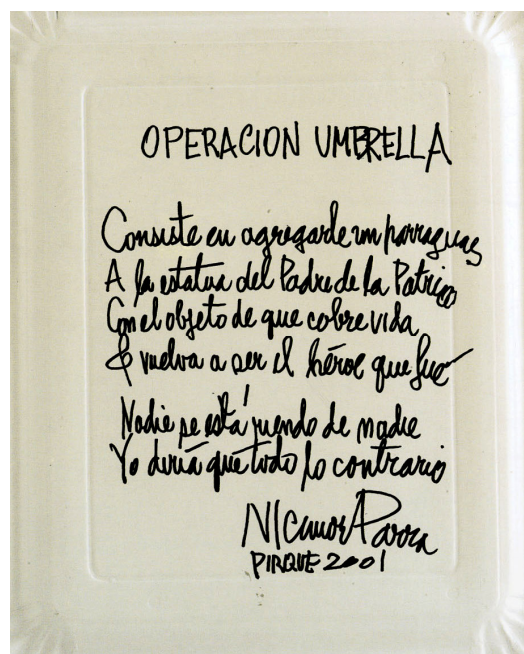 OPERACION UMBRELLA
Consiste en agregarle un parraguas
A la estatua del Padre de la Patria
Con el objeto de que cobre vida
& vuelva a ser el héroe que fué
Nadie se está riendo de nadie
Yo diría que todo lo contrario
NIcanor Parra
PIRQUE 2001